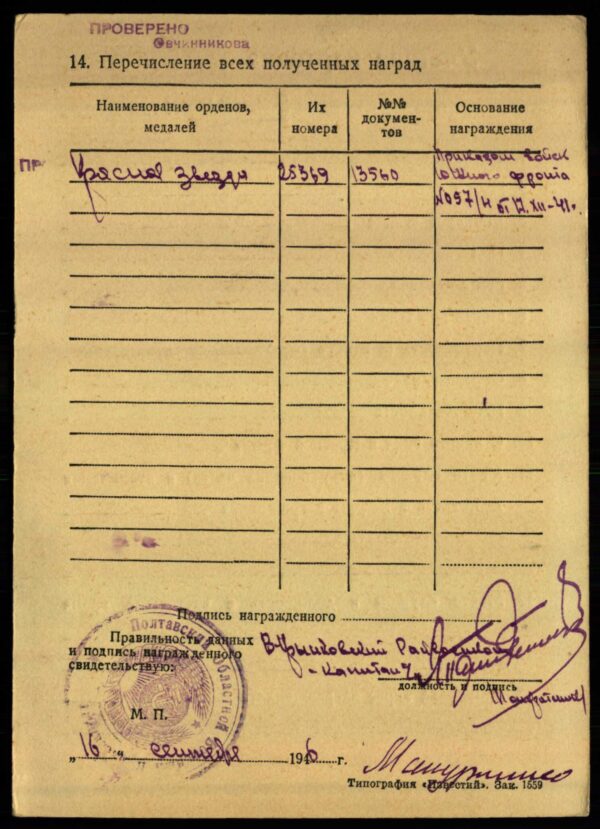 ПРОВЕРЕНО
Овчинникова
14. Перечисление всех полученных наград
Наименование орденов, медалей
Их номера
№№ документов
Основание награждения
ПР
Красная звезда 25369 13560 Приказом Войск
Южного фронта
№097/н от 17.XII-41г.
Подпись награжденного
Правильность данных
и подпись награжденного
свидетельствую:
Капитан
должность и подпись
Полтавский Областной
М. П.
„ 16 “ сентября 1946 г.
Типография «Известий». Зак. 1559